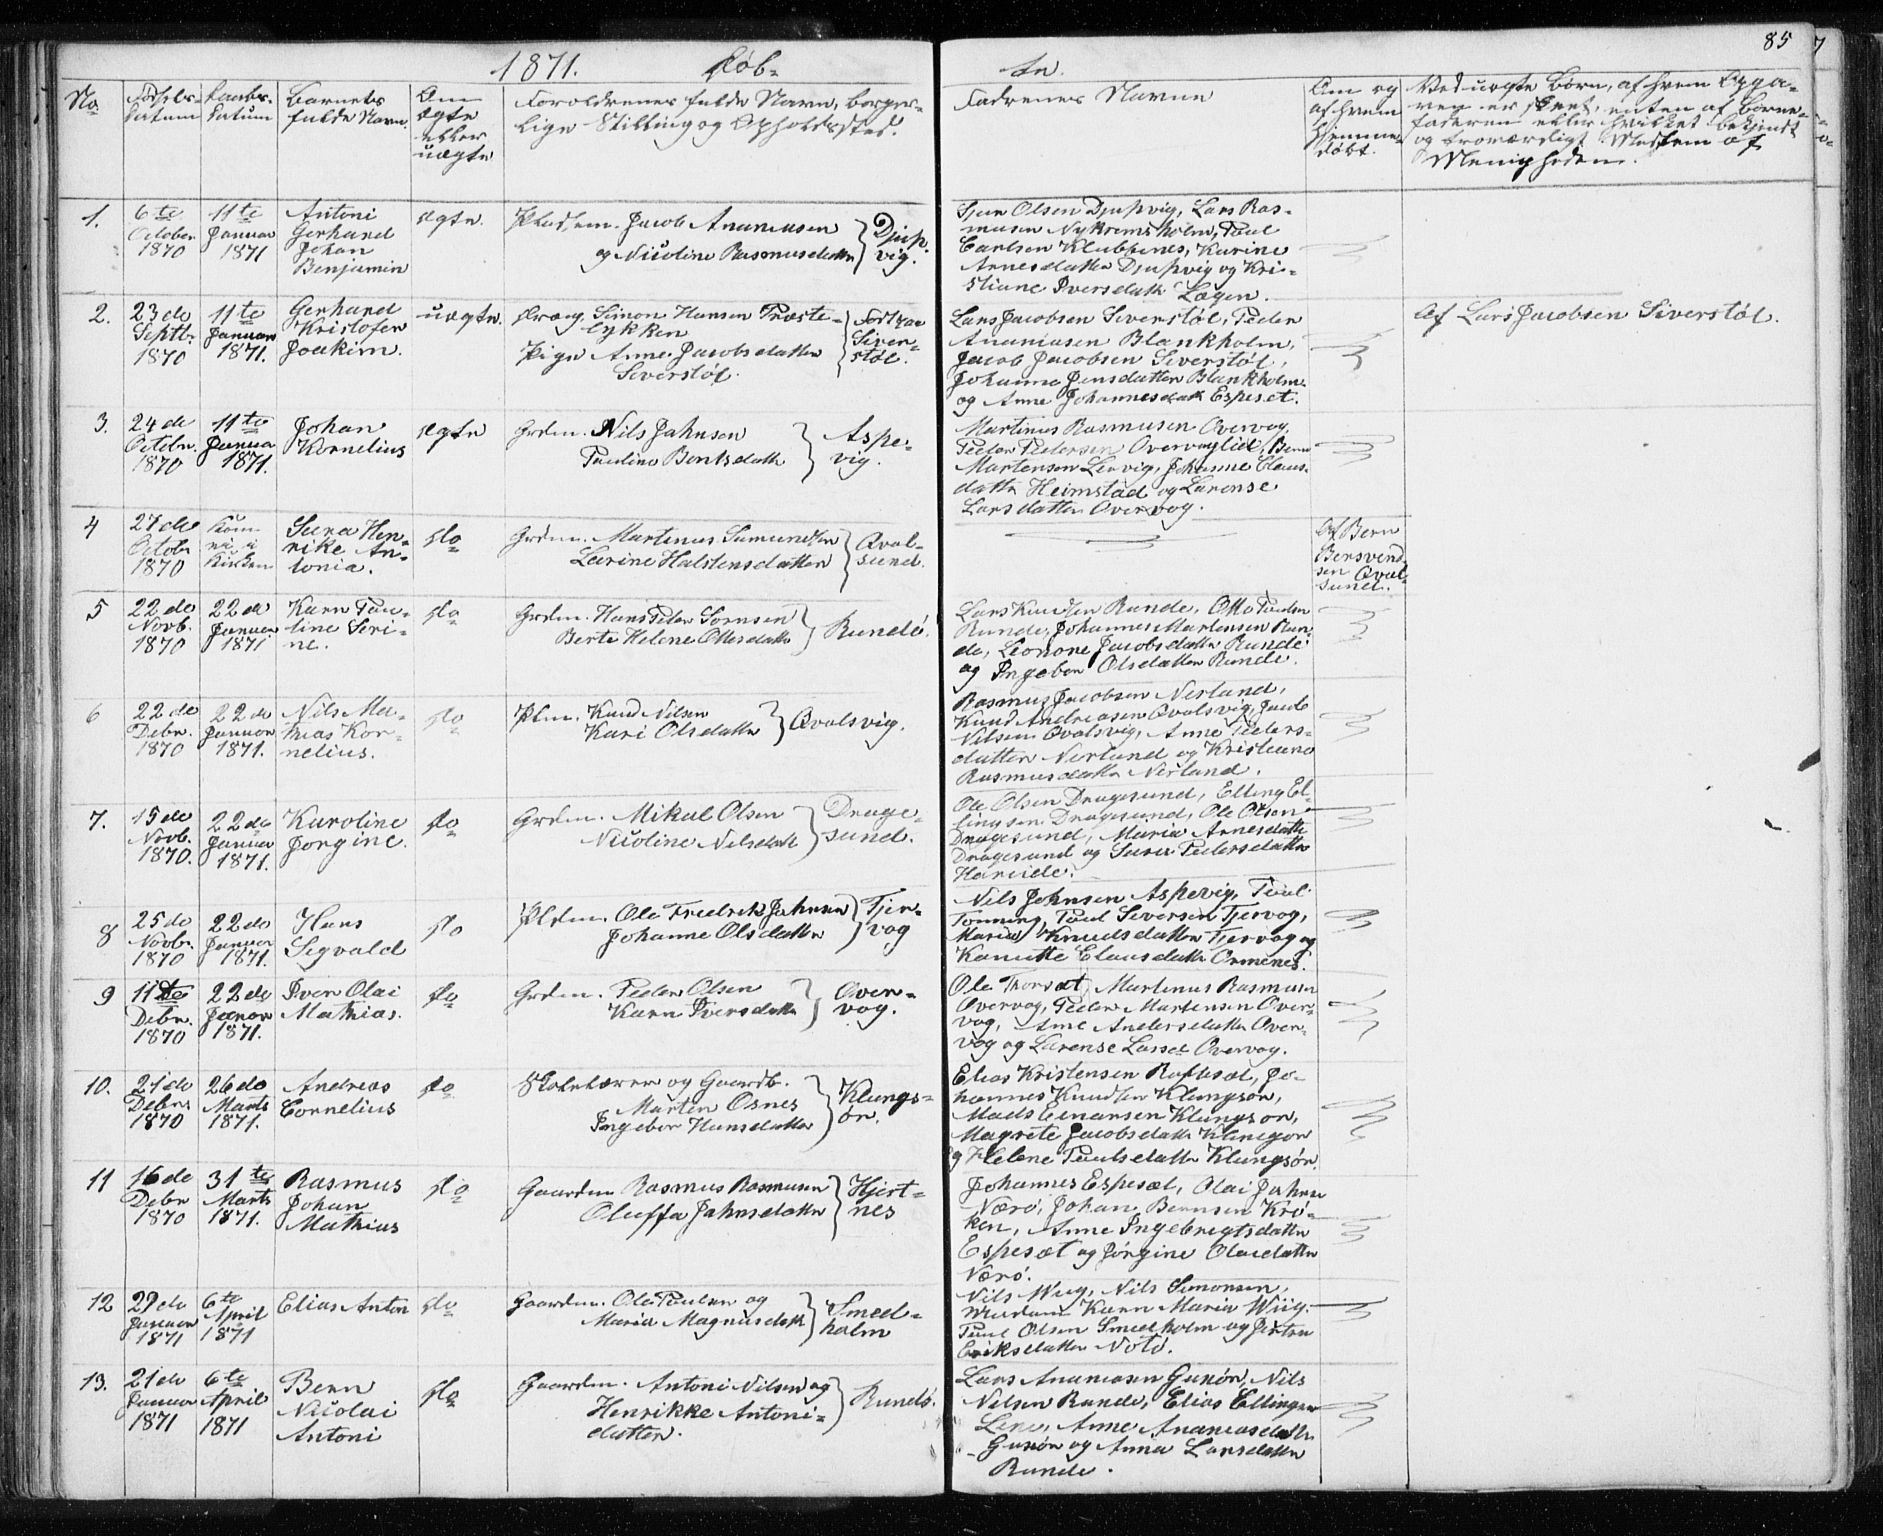 85
1871. Døb-
te.
No
Fødsels-
datum
Daabs-
datum
Barnets
fulde Navn.
Om
ægte
eller
uægte
Forældrenes fulde Navn, borger-
lige Stilling og Opholdssted.
Faddernes Navne
Om og
af hvem
hjemme-
døbt.
Ved uægte Børn, af hvem Opga-
ven er skeet, enten af Barne-
faderen eller hvilket bekjendt
og troværdigt Medlem af
Menigheden.
1. 6te October 1870
11te Januar 1871
Antoni
Gerhard
Johan
Benjamin
ægte.
Jacob Ananiasen
og Nicoline Rasmusdatter
Djup-
vig.
Sjur Olsen Djupvig, Lars Ras-
musen Nykremsholm, Paul
Carlsen Klubbenes, Karine
Arnesdatter Djupvig og Kri-
stiane Iversdatt Løgen.
2. 23de Septbr. 1870
11te Januar 1871.
Gerhard
Kristofer
Joakim.
uægte.
Dreng. Simon Hansen Præste-
løkken
Pige Anne Jacobsdatter
Siverstøl.
Siver-
støl.
Lars Jacobsen Siverstøl, Peder
Ananiasen Blankholm,
Jacob Jacobsen Siverstøl,
Johanne Jensdatter Blankholm
og Anne Johannesdatt Espeset.
Af Lars Jacobsen Siverstøl.
3. 24de Octobr. 1870
11te Janua 1871.
Johan
Kornelius
ægte
Grdm. Nils Jahnsen
Pauline Berntsdatt
Aspe-
vig.
Martinus Rasmusen Overvog,
Peder Pedersen Overvoglid, Bern
Martensen Leevig, Johanne Claus-
datter Heimstad og Larense
Larsdatter Overvog.
4 27de Octobr 1870
Seera Hen-
rike An-
tonia.
do
Grdm. Martinus Samundsen
Larine Halstensdatter
Qval-
sund.
Af Bern
Bersvend-
sen Qval-
sund.
5 22de Novb. 1870
22de Januar 1871
Karn Pau-
line Seri-
ne.
do
Grdm. Hans Peder Sørnsen
Berte Helene Ottesdatt
Rundø.
Lars Knudsen Runde, Otto Paulsen
Runde, Johannes Martensen Run-
de, Leonore Jacobsdatter Runde
og Ingebor Olsdatter Runde.
6 22de Debr. 1870
22de Januar 1871.
Nils Ma-
thias Kor-
nelius.
do
Plm. Knud Nilsen
Kari Olsdatter
Qvalsvig.
Rasmus Jacobsen Nerland,
Knud Andreasen Qvalsvig, Jacob
Nilsen Qvalsvig, Anne Peders-
datter Nerland og Kristiane
Rasmusdatter Nerland.
7. 15de Novb. 1870.
22de Januar 1871.
Karoline
Jorgine.
do
Grdm. Mikal Olsen
Nicoline Nilsdatt
Drage-
sund.
Ole Olsen Dragesund, Elling El-
lingsen Dragesund, Ole Olsen
Dragesund, Maria Arnesdatt
Dragesund og Sera Pedersdatter
Hareide.
8 25de Novbr. 1870
22de Januar 1871.
Hans
Sigvald
do
Plm. Ole Fredrik Jahnsen
Johanne Olsdatter
Tjer-
vog
Nils Johnsen Aspevig, Paul
Tonning, Paul Seversen Tjervog,
Maria Knudsdatter Tjervog og
Kanutte Clausdatter Ormenes.
9 11te Debr. 1870
22de Januar 1871.
Iver Olai
Mathias.
do
Grdm. Peder Olsen
Karn Iversdatter
Over-
vog.
Ole Thorsæt, Martinus Rasmusen
Overvog, Peder Martensen Over-
vog, Ane Andersdatter Over-
vog og Larense Larsd. Overvog.
10. 21de Debr. 1870
26de Marts 1871.
Andreas
Cornelius
do
Skolelærer og Gaardb.
Marten Osnes
Ingebor Hansdatter
Klungs-
ør.
Elias Kristensen Røbbesæt, Jo-
hannes Knudsen Klungsør,
Mads Einarsen Klungsør,
Magrete Jacobsdatter Klungsør
og Helene Paulsdatter Klungsør.
11 16de Debr 1870
31te Marts 1871.
Rasmus
Johan
Mathias
do
Gaardm. Rasmus Rasmusen
Oluffa Jahnsdatter
Hjert-
nes
Johannes Espesæt, Olai Jahnsen
Nærø, Johan Berntsen Krø-
ken, Anne Ingebrigtsdatter
Espesæt og Jørgine Olaidatter
Nærø.
12 29de Januar 1871
6te April 1871
Elias Anton
do
Gaardm. Ole Paulsen og
Maria Magnusdatt
Smeel-
holm
Nils Wiig, Nils Simonsen,
Madam Karn Maria Wiig,
Paul Olsen Smeelholm og Jertrn
Eriksdatter Notø.
13. 21de Januar 1871
6te April 1871
Bern
Nicolai
Antoni
do
Gaardm. Antoni Nilsen og
Henrikke Antoni-
datter.
Rundø.
Lars Ananiasen Gurøn, Nils
Nilsen Runde, Elias Ellingsen
Anne Ananiasdatter
Gurøn og Anna Larsdatter
Runde.